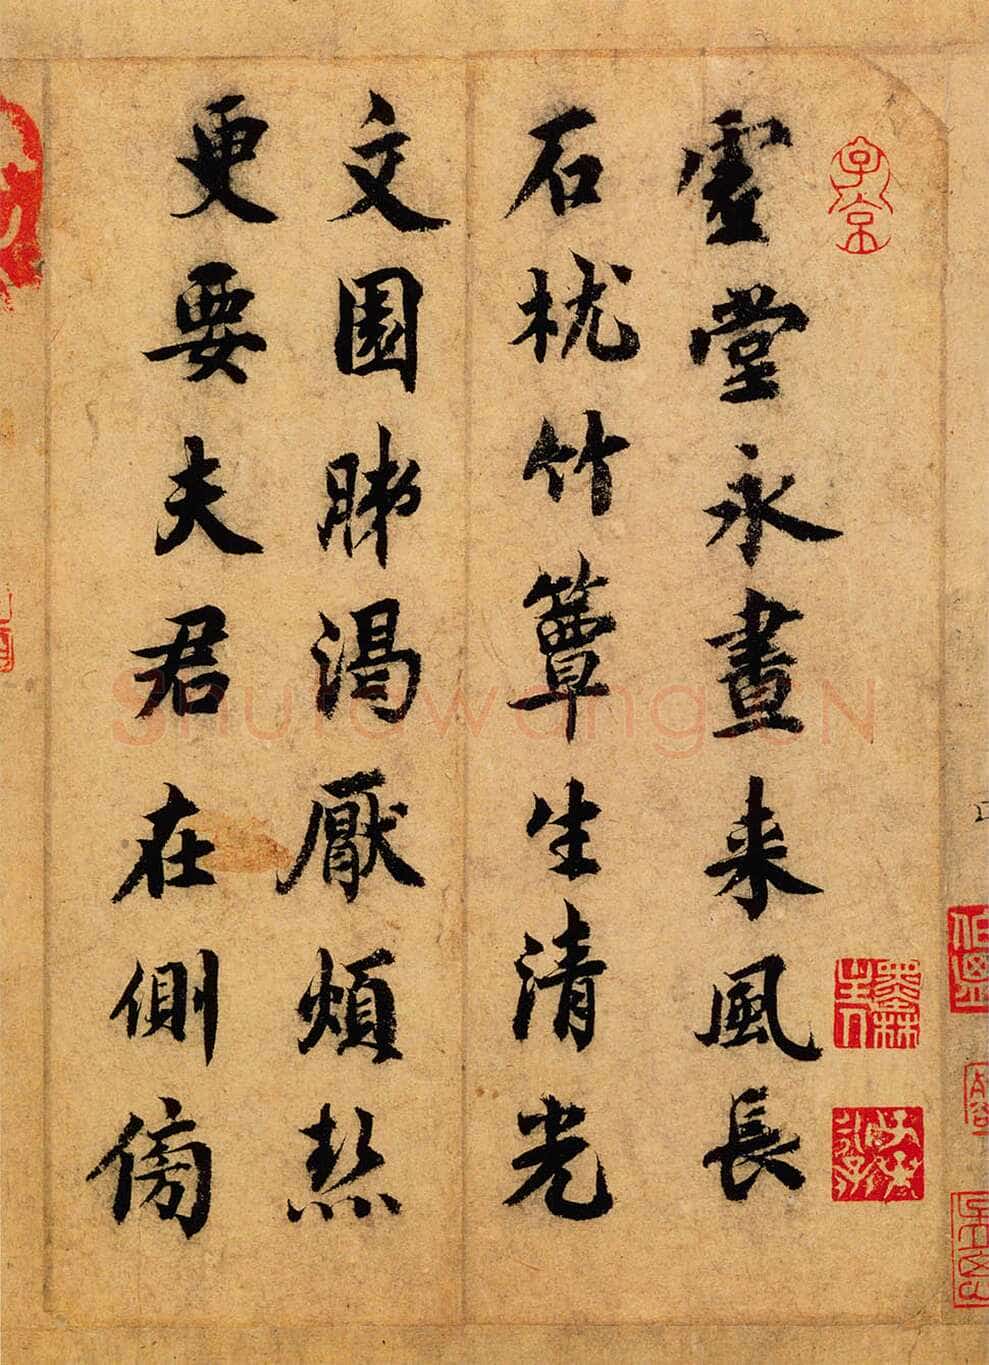 子京
虛堂永晝来風長
石枕竹簟生清光
文園肺渴厭煩熱
更要夫君在側傍
墨林山人
Shufawang.CN